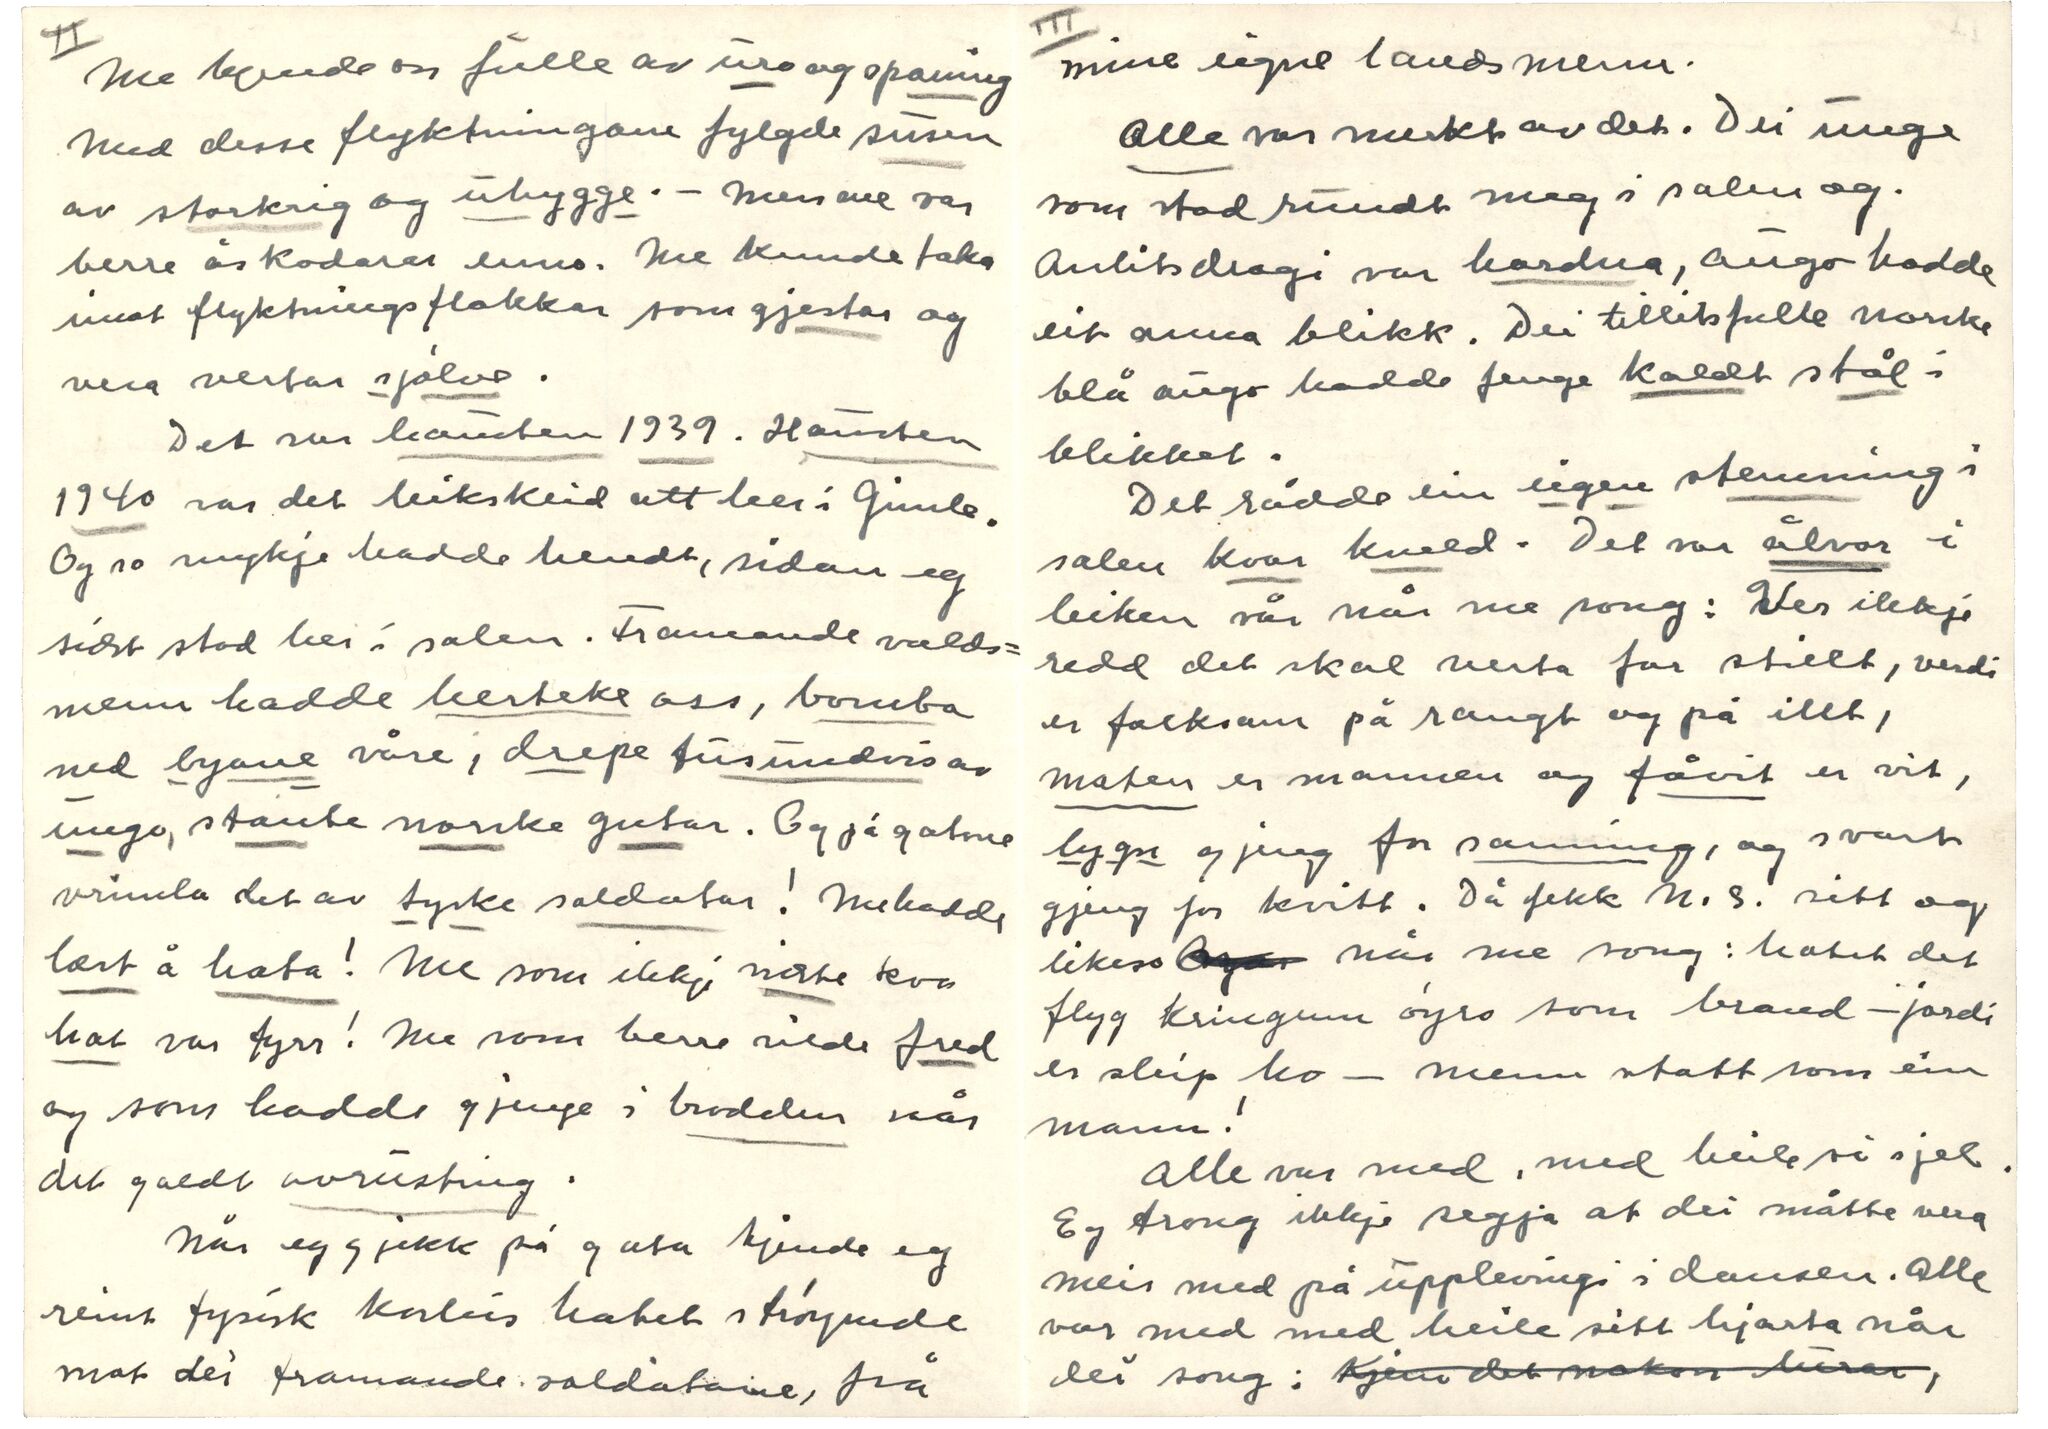 II
Me kjende oss fulle av uro og spaning
Med desse flyktningane fylgde susen
av storkrig og uhygge. – Men me var
berre åskodarar enno. Me kunde taka
imot flyktningsflokkar som gjestar og
vera vertar sjølve.
Det var hausten 1939. Hausten
1940 var det leikskeid att her i Gimle.
Og so mykje hadde hendt, sidan eg
sidst stod her i salen. Framande valds=
menn hadde herteke oss, bomba
ned byane våre, drepe tusundvis av
unge, staute norske gutar. Og på gatone
vrimla det av tyske soldatar! Me hadde
lært å hata! Me som ikkje visste kva
hat var fyrr! Me som berre vilde fred
og som hadde gjenge i brodden når
det galdt avrusting.
Når eg gjekk på gata kjende eg
reint fysisk korleis hatet strøymde
mot dei framande soldatane, frå
III
mine eigne landsmenn.
Alle var merkt av det. Dei unge
som stod rundt meg i salen og.
Anlitsdragi var hardna, augo hadde
eit anna blikk. Dei tillitsfulle norske
blå augo hadde fenge kaldt stål i
blikket.
Det rådde ein eigen stemning i
salen kvar kveld. Det var ålvor i
leiken vår når me song: Ver ikkje
redd det skal verta for stillt, verdi
er folksam på rangt og på illt,
maten er mannen og fåvit er vit,
lygn gjeng for sanning, og svart
gjeng for kvitt. Då fekk N.S. sitt og
likeso når me song: hatet det
flyg kringum øyro som brand – jordi
er sleip ho – menn statt som ein
mann!
Alle var med, med heile si sjel.
Eg trong ikkje segja at dei måtte vera
meir med på upplevingi i dansen. Alle
var med med heile sitt hjarta når
dei song: Kjem det nokon lurar,